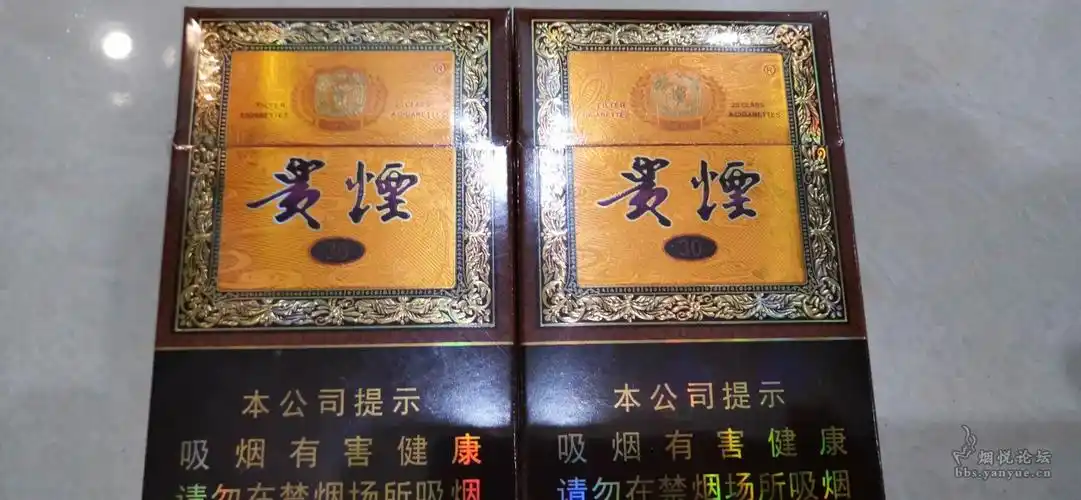 FILTER
CIGARETTES
®
贵煙
30
本公司提示
吸烟有害健康
请勿在禁烟场所吸烟
FILTER
CIGARETTES
®
贵煙
30
本公司提示
吸烟有害健康
请勿在禁烟场所吸烟
烟悦论坛
bbs.yanyue.cn